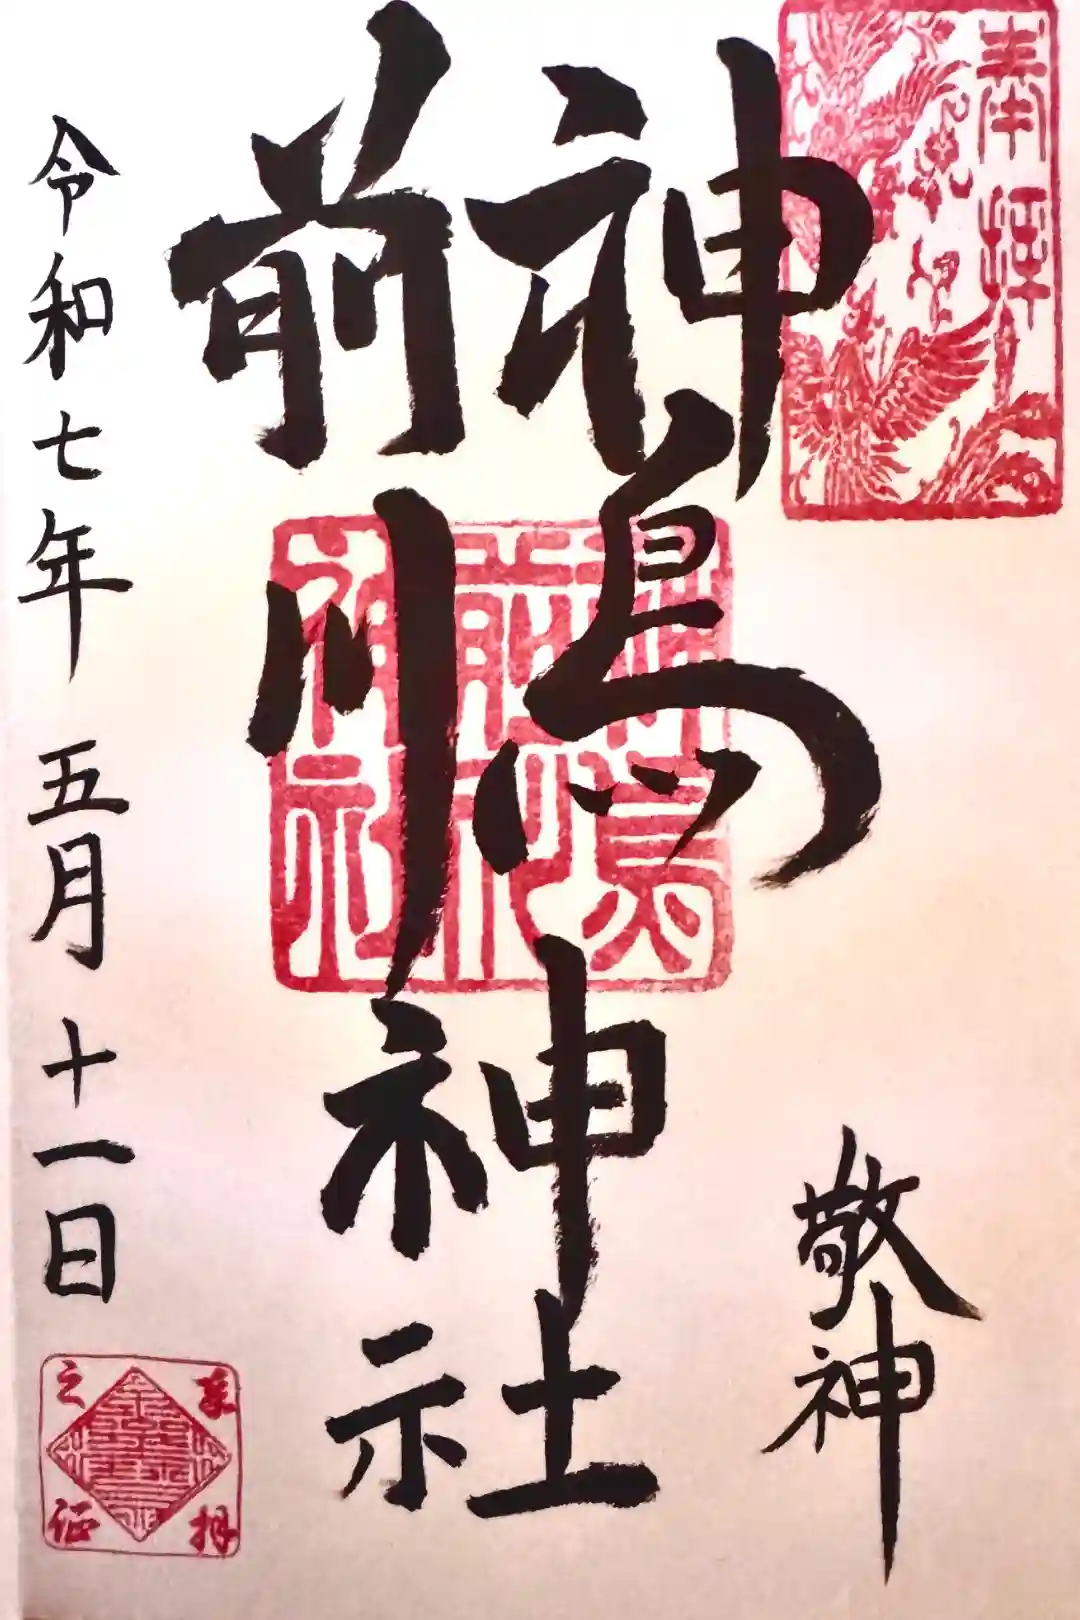 奉拝
敬神
神鳥
前川
神社
神鳥
前川
神社
令和七年 五月 十一日
来拝
之証